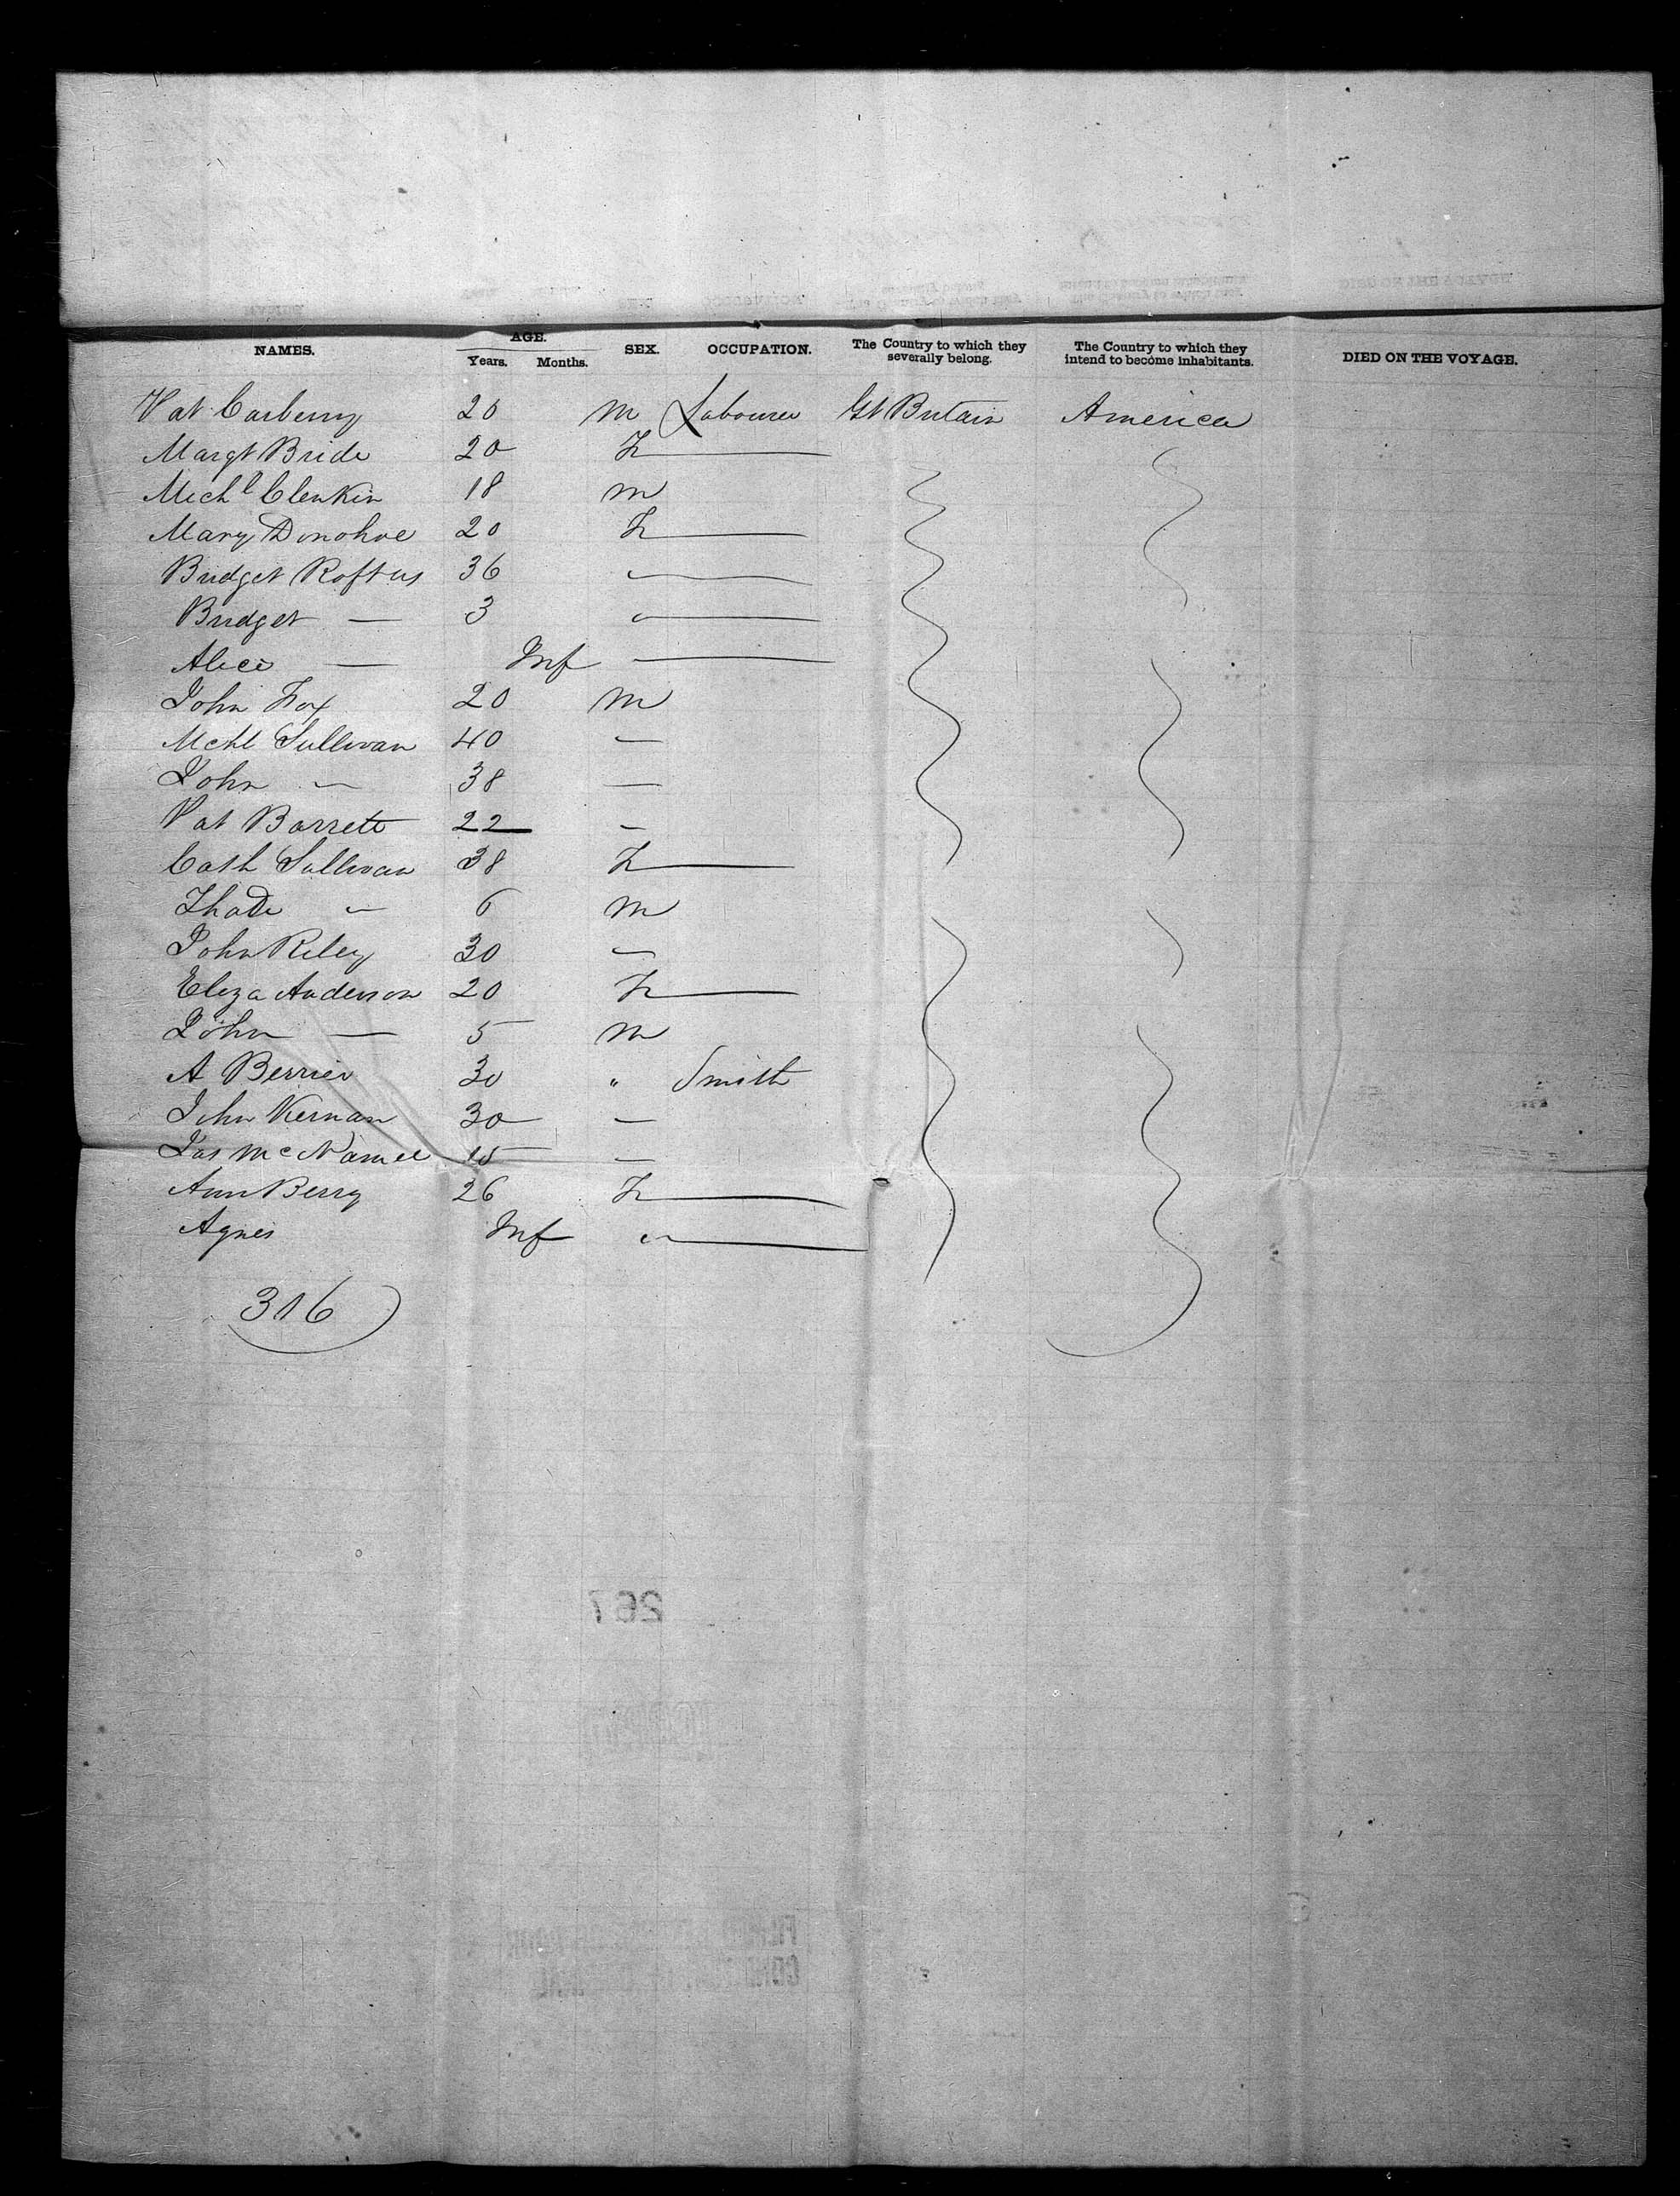 NAMES. AGE. Years. Months. SEX. OCCUPATION. The Country to which they severally belong. The Country to which they intend to become inhabitants. DIED ON THE VOYAGE.
Pat Carberry 20 m Labourer Gt Britain America
Margt Bride 20 F
Michl Clenkin 18 m
Mary Donohoe 20 F
Bridget Roftus 36 "
Bridget — 3 "
Alice — Inf
John Fox 20 m
Mchl Sullivan 40 "
John " 38 —
Pat Barrett 22 "
Cath Sullivan 38 F
Thade " 6 m
John Riley 30 "
Eliza Anderson 20 F
John — 5 m
A Berrier 30 " Smith
John Kernan 30 —
Jas McNamee 15 —
Ann Berry 26 F
Agnes Inf "
316
267